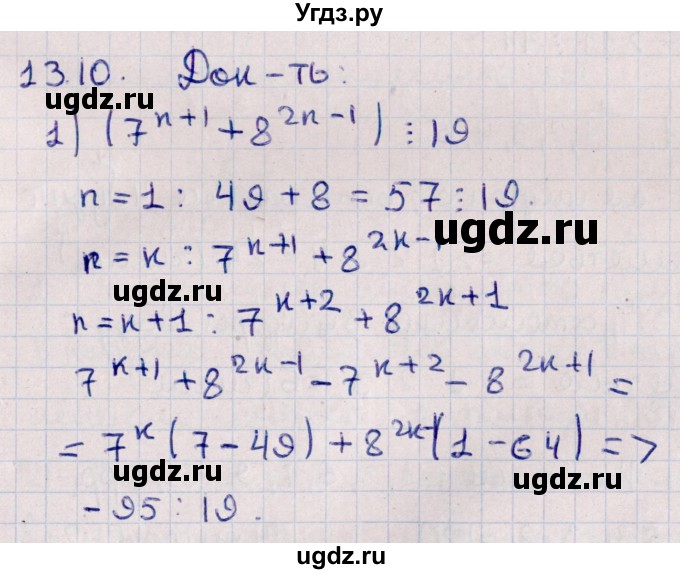 Угдз.ру
13.10. Док-ть:
ugdz.ru
ugdz.ru
1) (7^{n+1} + 8^{2n-1}) ⋮ 19
n = 1 : 49 + 8 = 57 ⋮ 19.
ugdz.ru
n = к : 7^{к+1} + 8^{2к-1}
ugdz.ru
n = к+1 : 7^{к+2} + 8^{2к+1}
7^{к+1} + 8^{2к-1} - 7^{к+2} - 8^{2к+1} =
ugdz.ru
= 7^к (7 - 49) + 8^{2к-1} (1 - 64) =>
ugdz.ru
- 95 : 19.
ugdz.ru